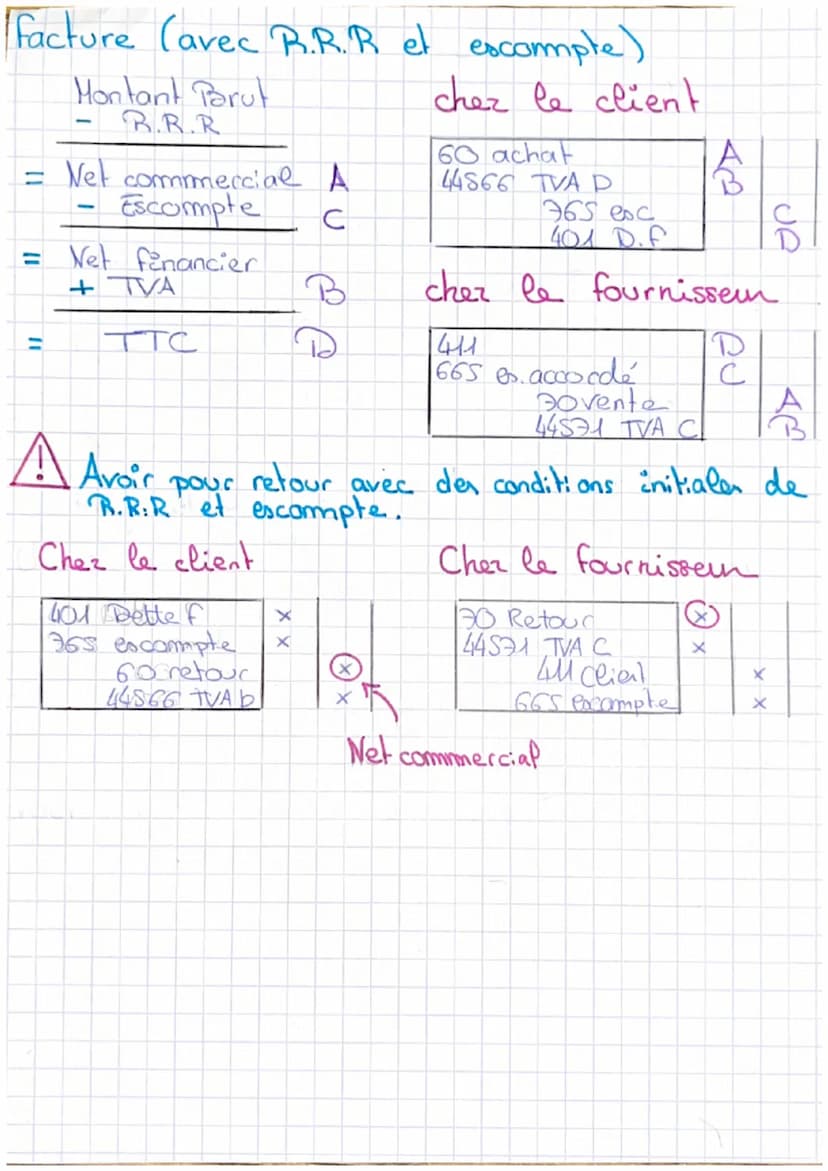 Facture (avec R.R.R et escompte)
Montant Brut
- R.R.R
= Net commmercial A
- Escompte C
= Net financier
+ TVA B
= TTC D
chez le client
60 achat A
44566 TVA D B
765 esc C
401 D.F D
chez le fournisseur
411 D
665 es. accordé C
70 vente A
44571 TVA C B
! Avoir pour retour avec des conditions initiales de
R.R.R et escompte.
Chez le client
401 Dette f x
765 escompte x
60 retour x
44566 TVA D x
Net commmercial
Chez le fournisseur
70 Retour x
44571 TVA C x
411 client x
665 escompte x